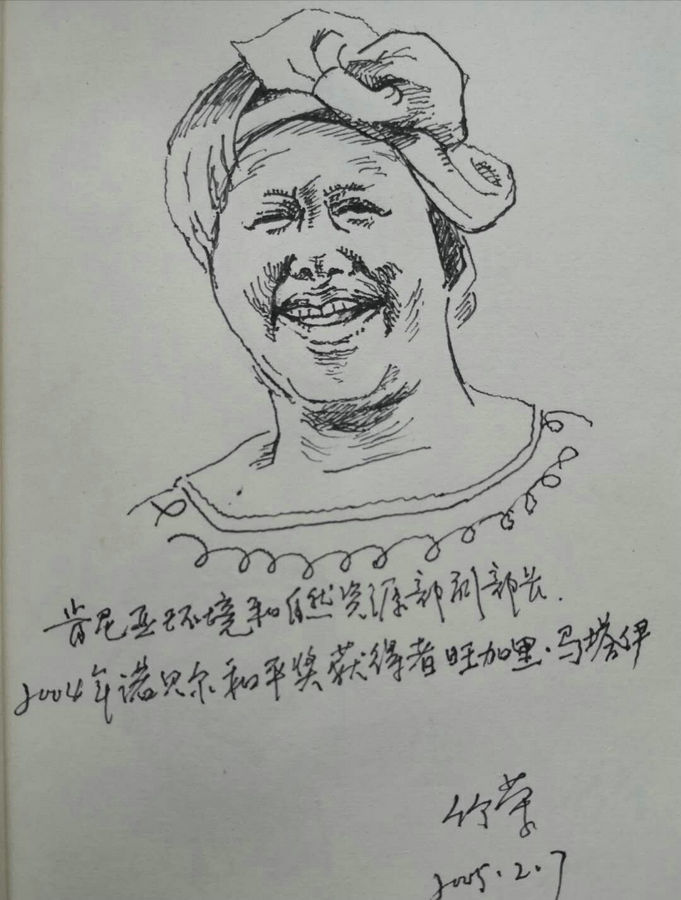 肯尼亚环境和自然资源部副部长.
2004年诺贝尔和平奖获得者旺加里·马塔伊
2005.2.7